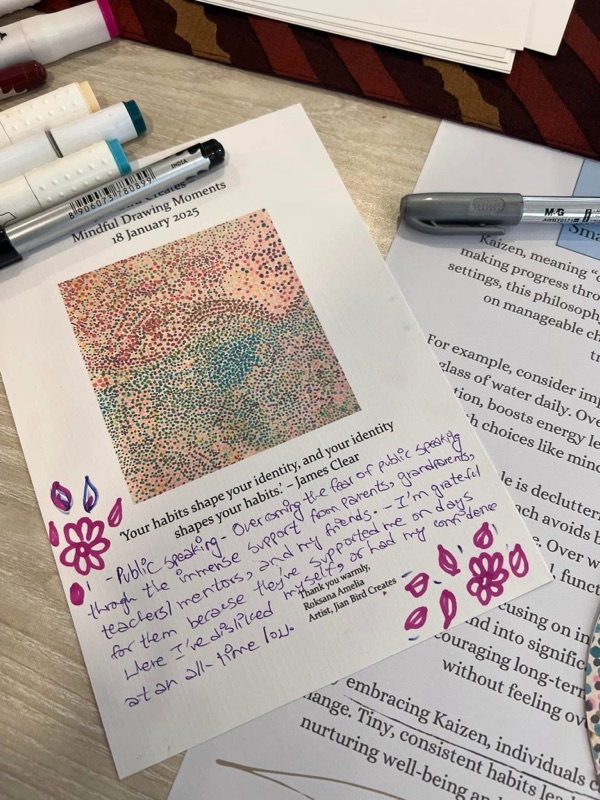 INDIA
8906075780899
Creates
Mindful Drawing Moments
18 January 2025
'Your habits shape your identity, and your identity
shapes your habits.' – James Clear
- Public speaking - Overcoming the fear of public speaking
through the immense support from parents, grandparents,
teachers/mentors, and my friends. - I'm grateful
for them because they've supported me on days
where I've disliced myself, or had my confidence
at an all-time low.
Thank you warmly,
Roksana Amelia
Artist, Jian Bird Creates
M&G
Sma
Kaizen, meaning "c
making progress thro
settings, this philosophy
on manageable ch
For example, consider imp
glass of water daily. Ove
tion, boosts energy le
h choices like mind
le is declutteri
ach avoids b
Over w
l funct
cusing on in
nd into signific
ouraging long-term
without feeling ov
embracing Kaizen, individuals c
hange. Tiny, consistent habits lead
nurturing well-being and